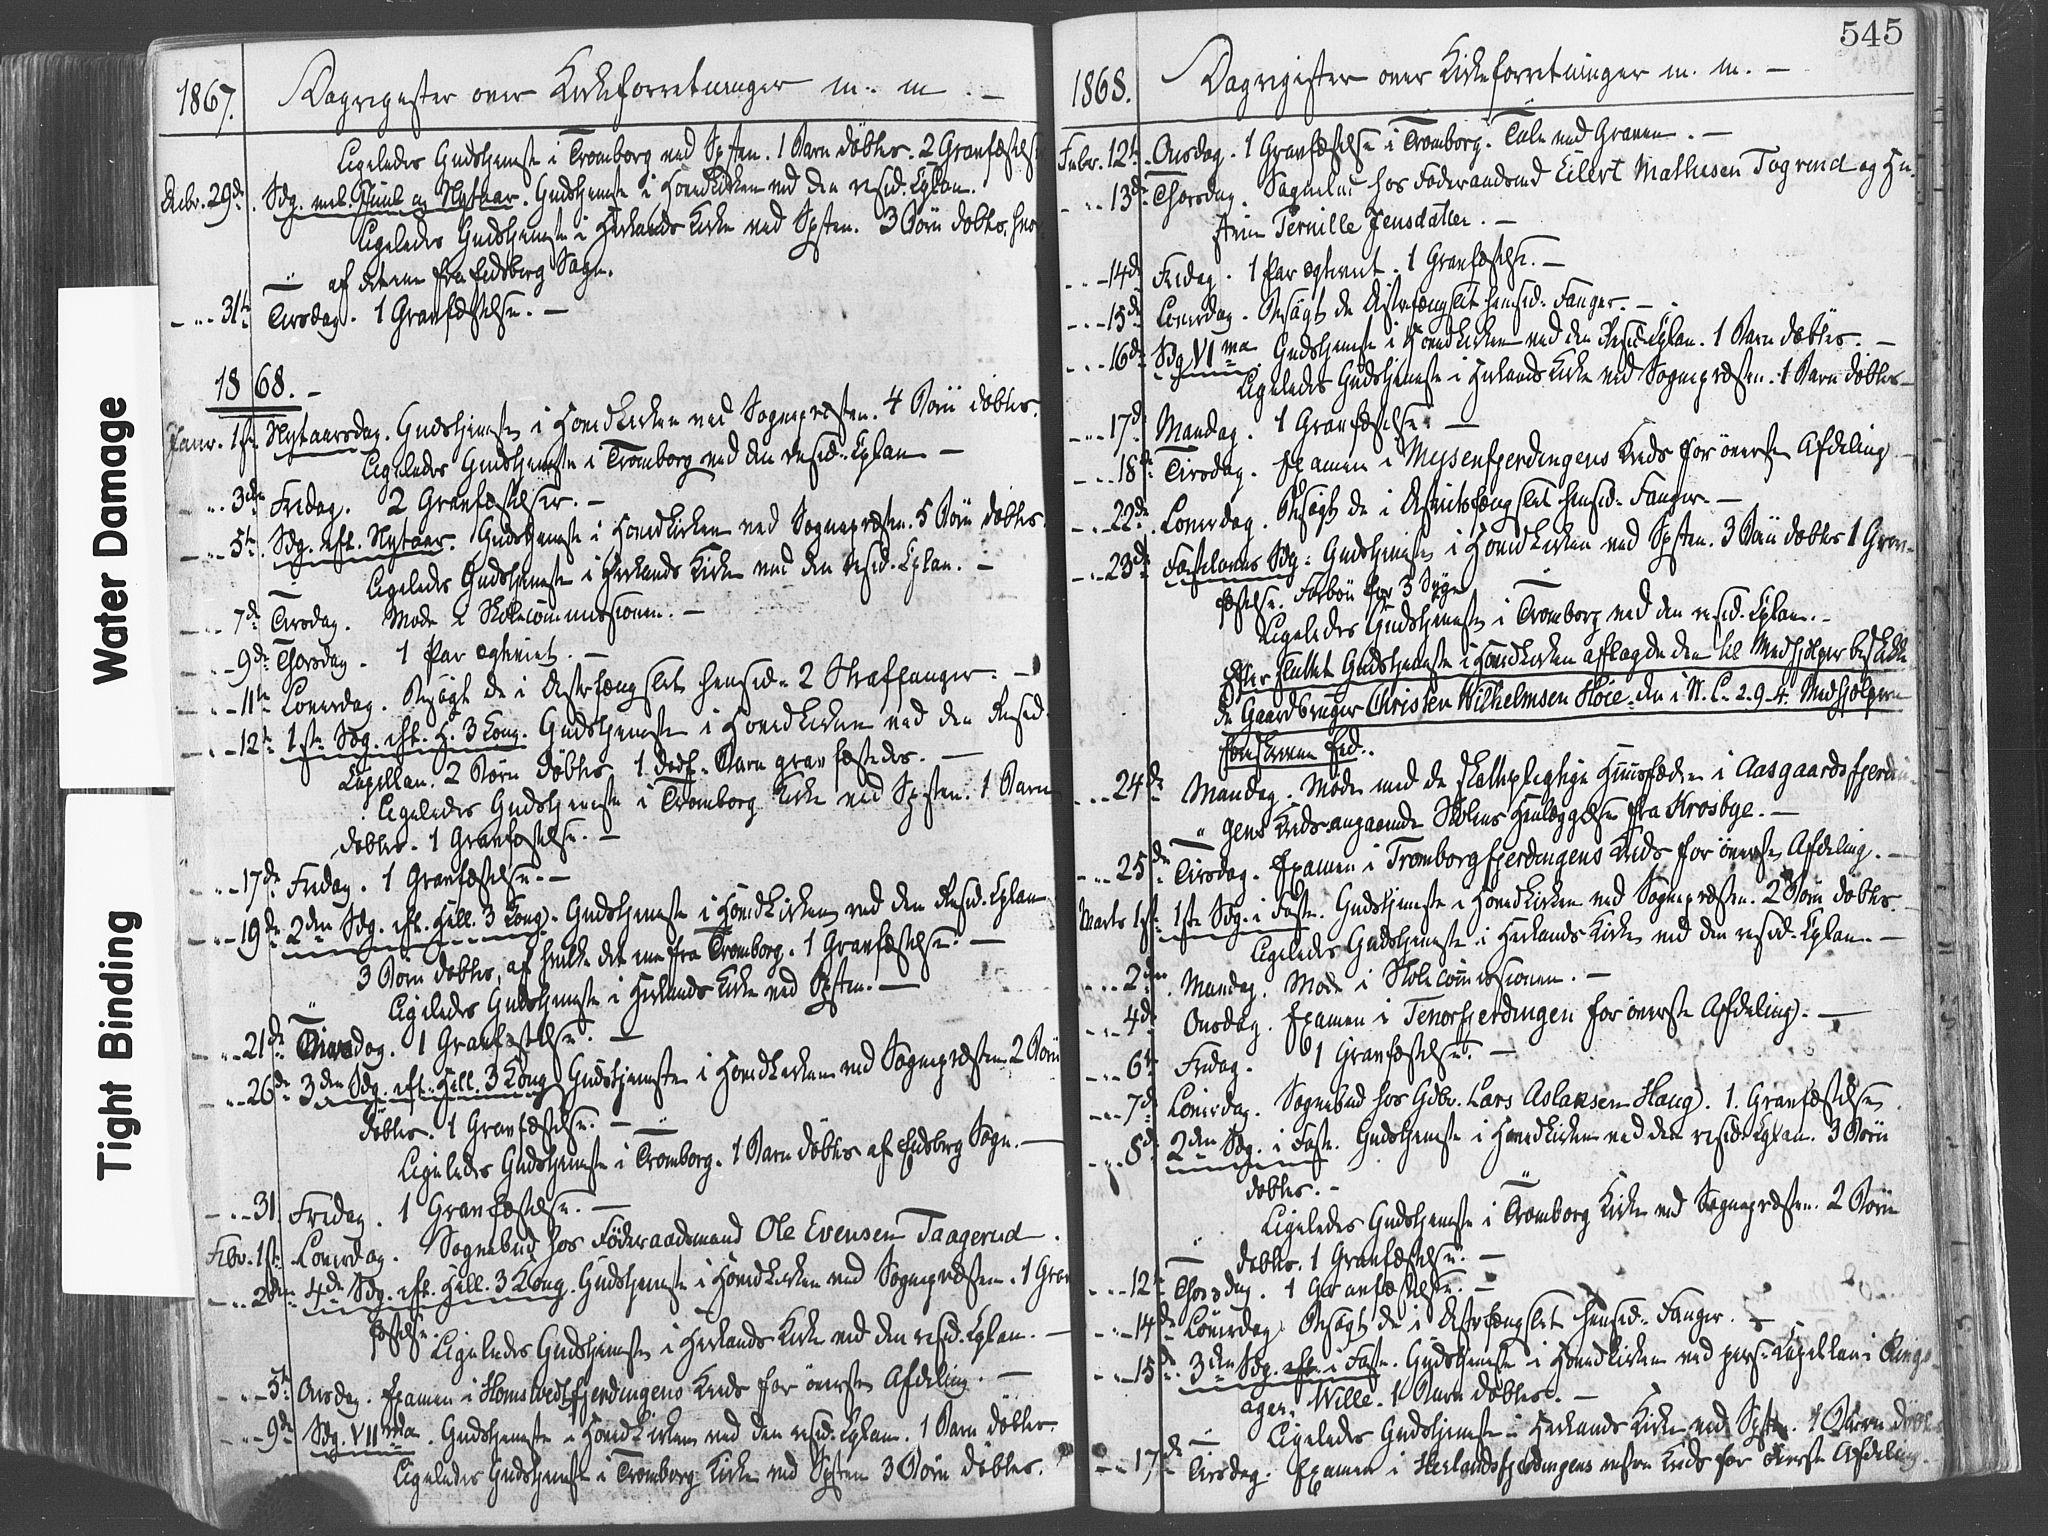 1867. Dagregister over Kirkeforretninger m. m. —
Ligeledes Gudstjeneste i Tromborg ved Spsten. 1 Barn döbtes. 2 Gravfæstelser
Decbr. 29de. Sdg. mel. Juul og Nytaar. Gudstjeneste i Hovedkirken ved den resid. Cplan.
Ligeledes Gudstjeneste i Herlands Kirke ved Spsten. 3 Börn döbtes, hvor
af det ene fra Eidsberg Sogn.
— " — 31te Tirsdag. 1 Gravfæstelse. —
1868. —
Janr. 1ste. Nytaarsdag. Gudstjeneste i Hovedkirken ved Sognepræsten. 4 Börn döbtes.
Ligeledes Gudstjeneste i Tromborg ved den resid. Cplan —
— " — 3die Fredag. 2 Gravfæstelser. —
— " — 5te. Sdg. eft. Nytaar. Gudstjeneste i Hovedkirken ved Sognepræsten. 5 Börn döbtes.
Ligeledes Gudstjeneste i Herlands Kirke ved den resid. Cplan. —
— " — 7de Tirsdag. Möde i Skolecommissionen. —
— " — 9de Thorsdag. 1 Par ægteviet. —
— " — 11te Löverdag. Besögt de i Distrfængslet hensid. 2 Straffanger. —
— " — 12te 1ste Sdg. eft. H. 3 Kong. Gudstjeneste i Hovedkirken ved den Resid.
Capellan. 2 Börn döbtes 1 dødf. Barn gravfæstedes. —
Ligeledes Gudstjeneste i Tromborg Kirke ved Spsten. 1 Barn
döbtes. 1 Gravfæstelse. —
— " — 17de Fredag. 1 Gravfæstelse. —
— " — 19de 2den Sdg. eft. Hell. 3 Kong. Gudstjeneste i Hovedkirken ved den Resid. Cplan
3 Börn döbtes, af hvilke det ene fra Tromborg. 1 Gravfæstelse. —
Ligeledes Gudstjeneste i Herlands Kirke ved Spsten. —
— " — 21de Tirsdag. 1 Gravfæstelse. —
— " — 26de 3den Sdg. eft. Hell. 3 Kong Gudstjeneste i Hovedkirken ved Sognepræsten 2 Börn
döbtes. 1 Gravfæstelse. —
Ligeledes Gudstjeneste i Tromborg. 1 Barn döbtes af Eidsberg Sogn. —
— " — 31. Fredag. 1 Gravfæstelse. —
Febr. 1ste Löverdag. Sognebud hos Föderaadsmand Ole Evensen Taagerud.
— " — 2den 4de Sdg. eft. Hell. 3 Kong. Gudstjeneste i Hovedkirken ved Sognepræsten. 1 Grav
fæstelse.
Ligeledes Gudstjeneste i Herlands Kirke ved den resid. Cplan. —
— " — 5te Onsdag. Examen i Homstvedtfjerdingens Kreds for överste Afdeling. —
— " — 9de Sdg. VIIma. Gudstjeneste i Hovedkirken ved den resid. Cplan. 1 Barn döbtes.
Ligeledes Gudstjeneste i Tromborg Kirke ved Spsten 3 Börn döbtes.
545
1868. Dagregister over Kirkeforretninger m. m. —
Febr. 12te Onsdag. 1 Gravfæstelse i Tromborg. Tale ved Graven. —
— " — 13de Thorsdag. Sognebud hos Föderaadsmd Eilert Mathesen Togrud og Hu-
struu Pernille Jensdatter. —
— " — 14de Fredag. 1 Par ægteviet. 1 Gravfæstelse. —
— " — 15de Löverdag. Besögt de i Distrfængslet hensid. Fanger. —
— " — 16de Sdg VIma Gudstjeneste i Hovedkirken ved den Resid. Cplan. 1 Barn döbtes. —
Ligeledes Gudstjeneste i Herlands Kirke ved Sognepræsten. 1 Barn döbtes —
— " — 17de Mandag. 1 Gravfæstelse. —
— " — 18de Tirsdag. Examen i Mysenfjerdingens Kreds for överste Afdeling
— " — 22de Löverdag. Besögt de i Distriktsfængslet hensid. Fanger. —
— " — 23de Fastelavns Sdg. Gudstjeneste i Hovedkirken ved Spsten. 3 Börn döbtes 1 Grav-
fæstelse. Forbön for 3 Syge
Ligeledes Gudstjeneste i Tromborg ved den resid. Cplan. —
Efter sluttet Gudstjeneste i Hovedkirken aflagde den til Medhjelper beskikke
de Gaardbruger Christen Wilhelmsen Höie den i N. L. 2. 9. 4. Medhjelpern
foreskrevne Eed.
— " — 24de Mandag. Möde med de skattepligtige Huusfædre i Aasgaardsfjerdin-
gens Kreds angaaende Skolens Henlæggelse fra Krosbye. —
— " — 25de Tirsdag. Examen i Tromborgfjerdingens Kreds for överste Afdeling. —
Marts 1ste 1ste Sdg. i Faste. Gudstjeneste i Hovedkirken ved Sognepræsten. 2 Börn döbtes.
Ligeledes Gudstjeneste i Herlands Kirke ved den resid. Cplan. —
— " — 2den Mandag. Möde i Skolecommissionen. —
— " — 4de Onsdag. Examen i Tenorfjerdingen for överste Afdeling. —
— " — 6te Fredag. 1 Gravfæstelse. —
— " — 7de Löverdag. Sognebud hos Gdbr. Lars Aslaksen Haug. 1 Gravfæstelse.
— " — 8de 2den Sdg. i Faste. Gudstjeneste i Hovedkirken ved den resid. Cplan. 3 Börn
döbtes. —
Ligeledes Gudstjeneste i Tromborg Kirke ved Sognepræsten. 2 Börn
döbtes. 1 Gravfæstelse. —
— " — 12te Thorsdag. 1 Gravfæstelse. —
— " — 14de Löverdag Besögt de i Distrfængslet hensid. Fanger. —
— " — 15de. 3die Sdg. eft. i Faste. Gudstjeneste i Hovedkirken ved pers. Kapellan i Rings-
ager, Wille. 1 Barn döbtes. —
Ligeledes Gudstjeneste i Herlands Kirke ved Spsten. 1 Barn döbtes
— " — 17de Tirsdag. Examen i Herlandsfjerdingens nedre Kreds for överste Afdeling.
Water Damage
Tight Binding